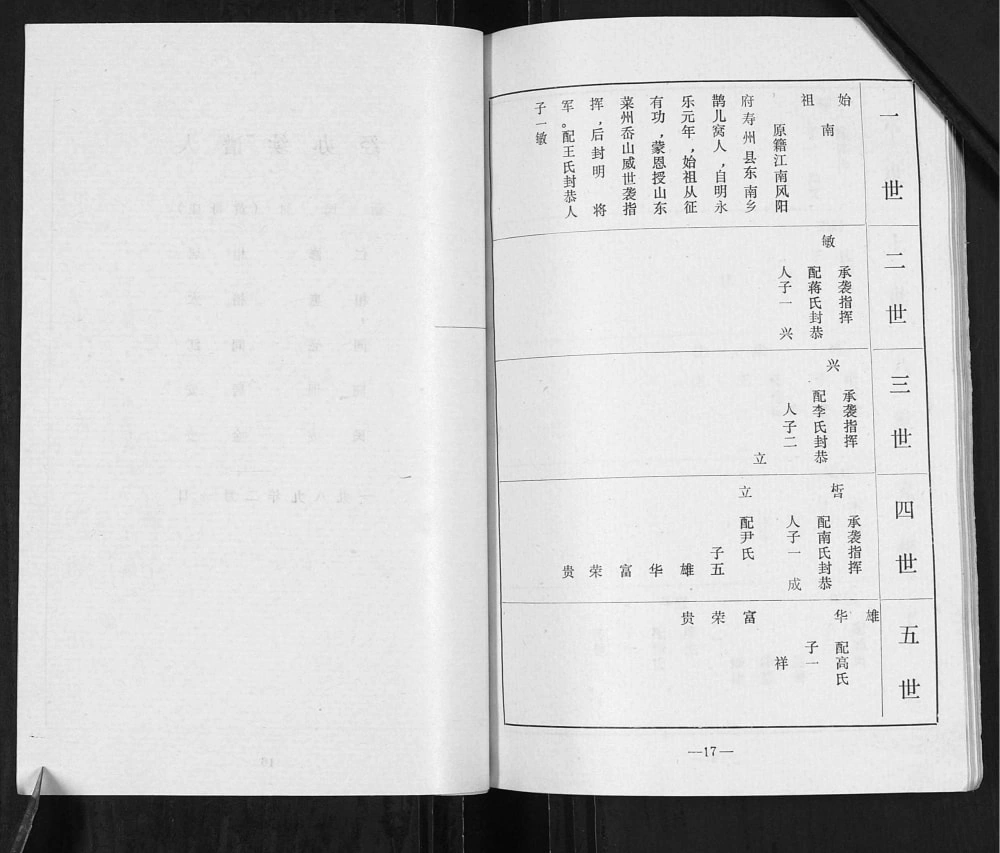 一世
始祖
南
原籍江南风阳
府寿州县东南乡
鹊儿窝人，自明永
乐元年，始祖从征
有功，蒙恩授山东
菜州岙山威世袭指
挥，后封明 将
军。配王氏封恭人
子一敏
二世
敏
承袭指挥
配蒋氏封恭
人子一 兴
三世
兴
承袭指挥
配李氏封恭
人子二
立
四世
皙
承袭指挥
配南氏封恭
人子一 成
立
配尹氏
子五
雄
华
富
荣
贵
五世
雄
华 配高氏
子一
祥
富
荣
贵
—17—